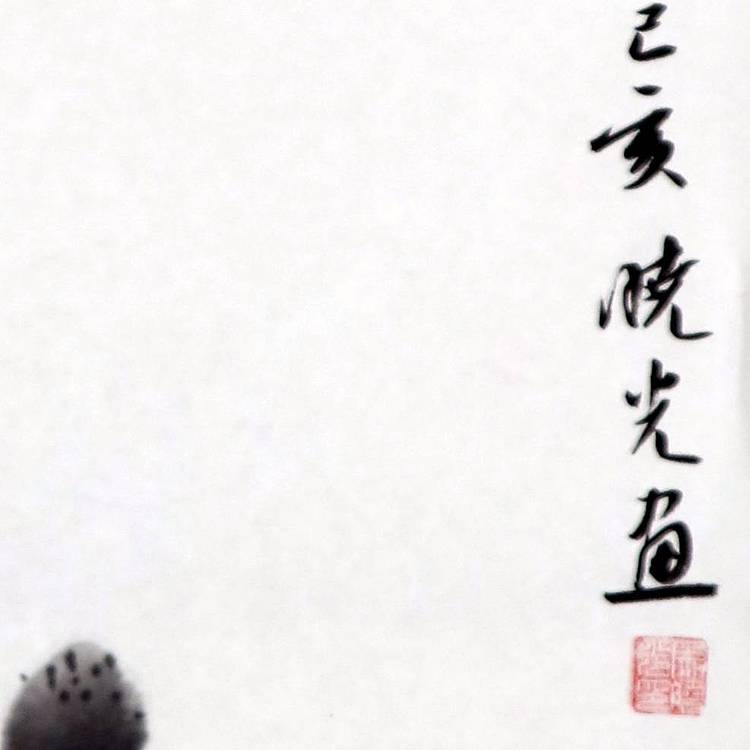 己亥晓光画